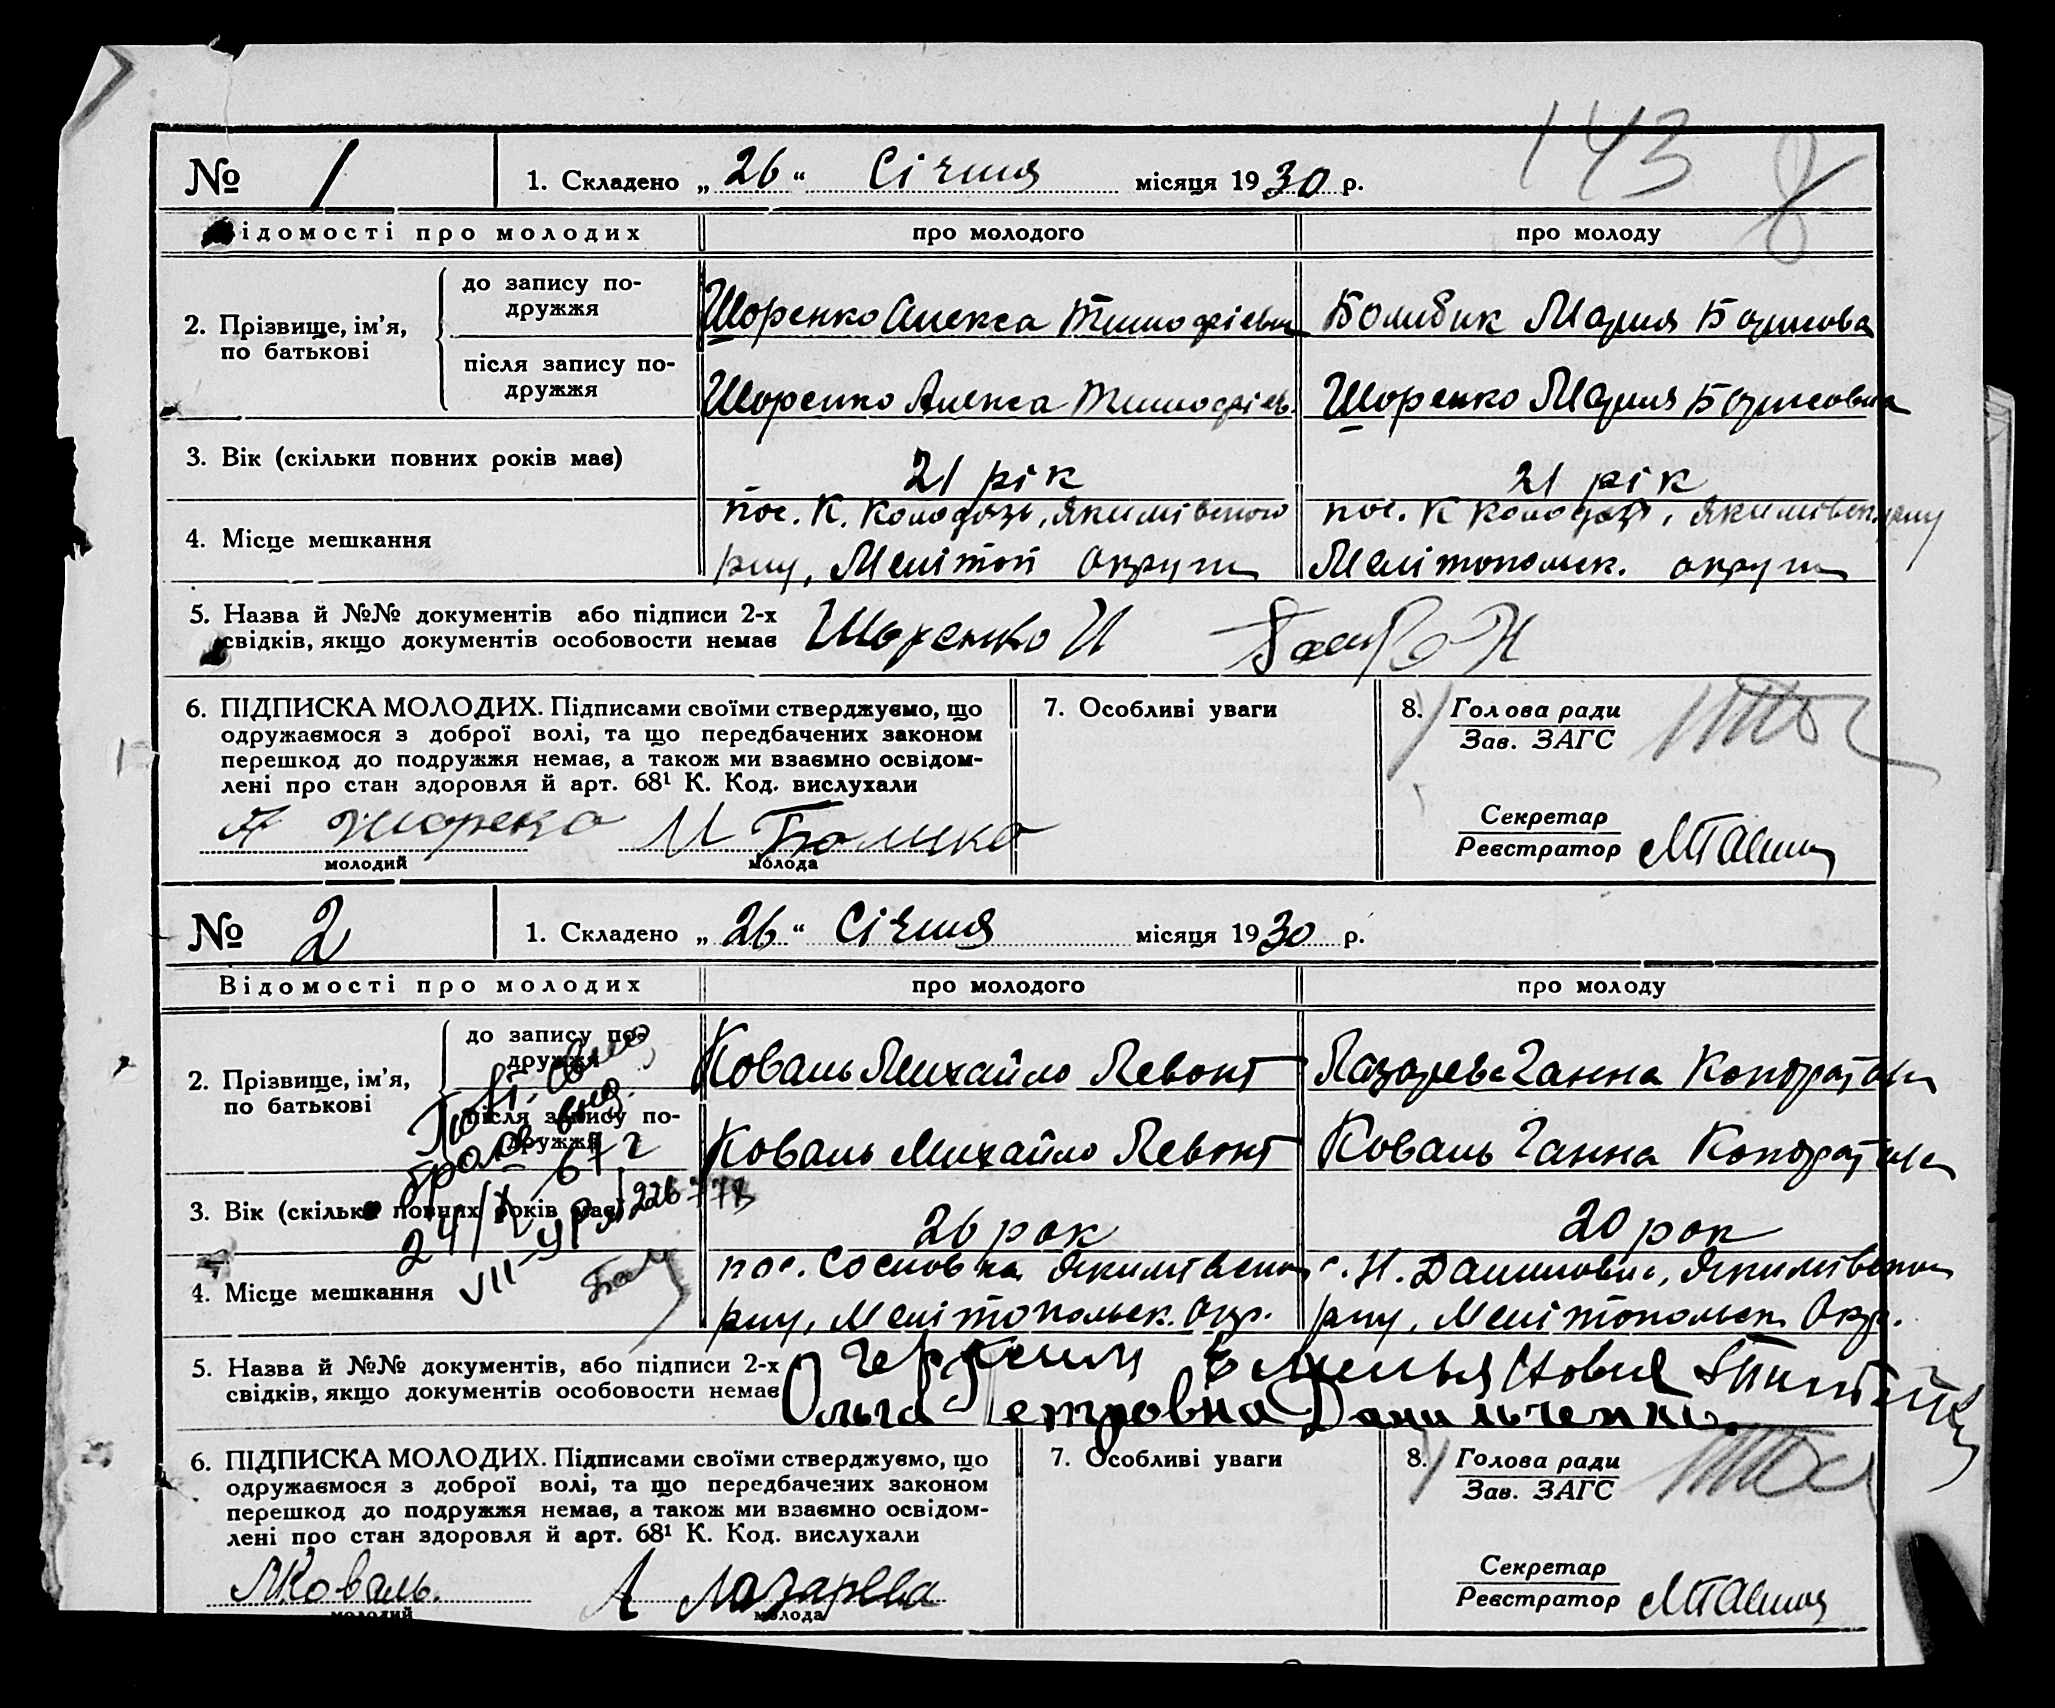 143
8
№ 1 1. Складено „ 26 “ Січня місяця 1930 р.
Відомості про молодих про молодого про молоду
2. Прізвище, ім’я, по батькові
до запису подружжя Шоренко Алекса Тимофієвич Болибик Мария Борисова
після запису подружжя Шоренко Алекса Тимофієв. Шоренко Мария Борисовна
3. Вік (скільки повних років має) 21 рік 21 рік
4. Місце мешкання пос. К. Колодязь, Якимівского пос. К Колодязь, Якимівск. рну
рну, Меліто́п округи Мелітопольк. округи
5. Назва й №№ документів або підписи 2-х Шоренко И
свідків, якщо документів особовости немає
6. ПІДПИСКА МОЛОДИХ. Підписами своїми стверджуємо, що
одружаємося з доброї волі, та що передбачених законом
перешкод до подружжя немає, а також ми взаємно освідом-
лені про стан здоровля й арт. 68¹ К. Код. вислухали
молодий молода
7. Особливі уваги
8. Голова ради
Зав. ЗАГС
Секретар
Реєстратор
№ 2 1. Складено „ 26 “ Січня місяця 1930 р.
Відомості про молодих про молодого про молоду
2. Прізвище, ім’я, по батькові
до запису подружжя Коваль Михайло Левонт Лазарева Ганна Кондратовн
після запису подружжя Коваль Михайло Левонт Коваль Ганна Кондратовн
3. Вік (скільки повних років має) 26 рок 20 рок
24/X 67 г
VIII-УР № 226773
4. Місце мешкання пос. Сосновка Якимівского с. Н. Даниловка, Якимівского
рну, Мелітопольск. Окр. рну, Мелітопольск. Окр.
5. Назва й №№ документів, або підписи 2-х
свідків, якщо документів особовости немає Ольга Петровна Данильченко.
6. ПІДПИСКА МОЛОДИХ. Підписами своїми стверджуємо, що
одружаємося з доброї волі, та що передбачених законом
перешкод до подружжя немає, а також ми взаємно освідом-
лені про стан здоровля й арт. 68¹ К. Код. вислухали
М Коваль. А Лазарева
молодий молода
7. Особливі уваги
8. Голова ради
Зав. ЗАГС
Секретар
Реєстратор